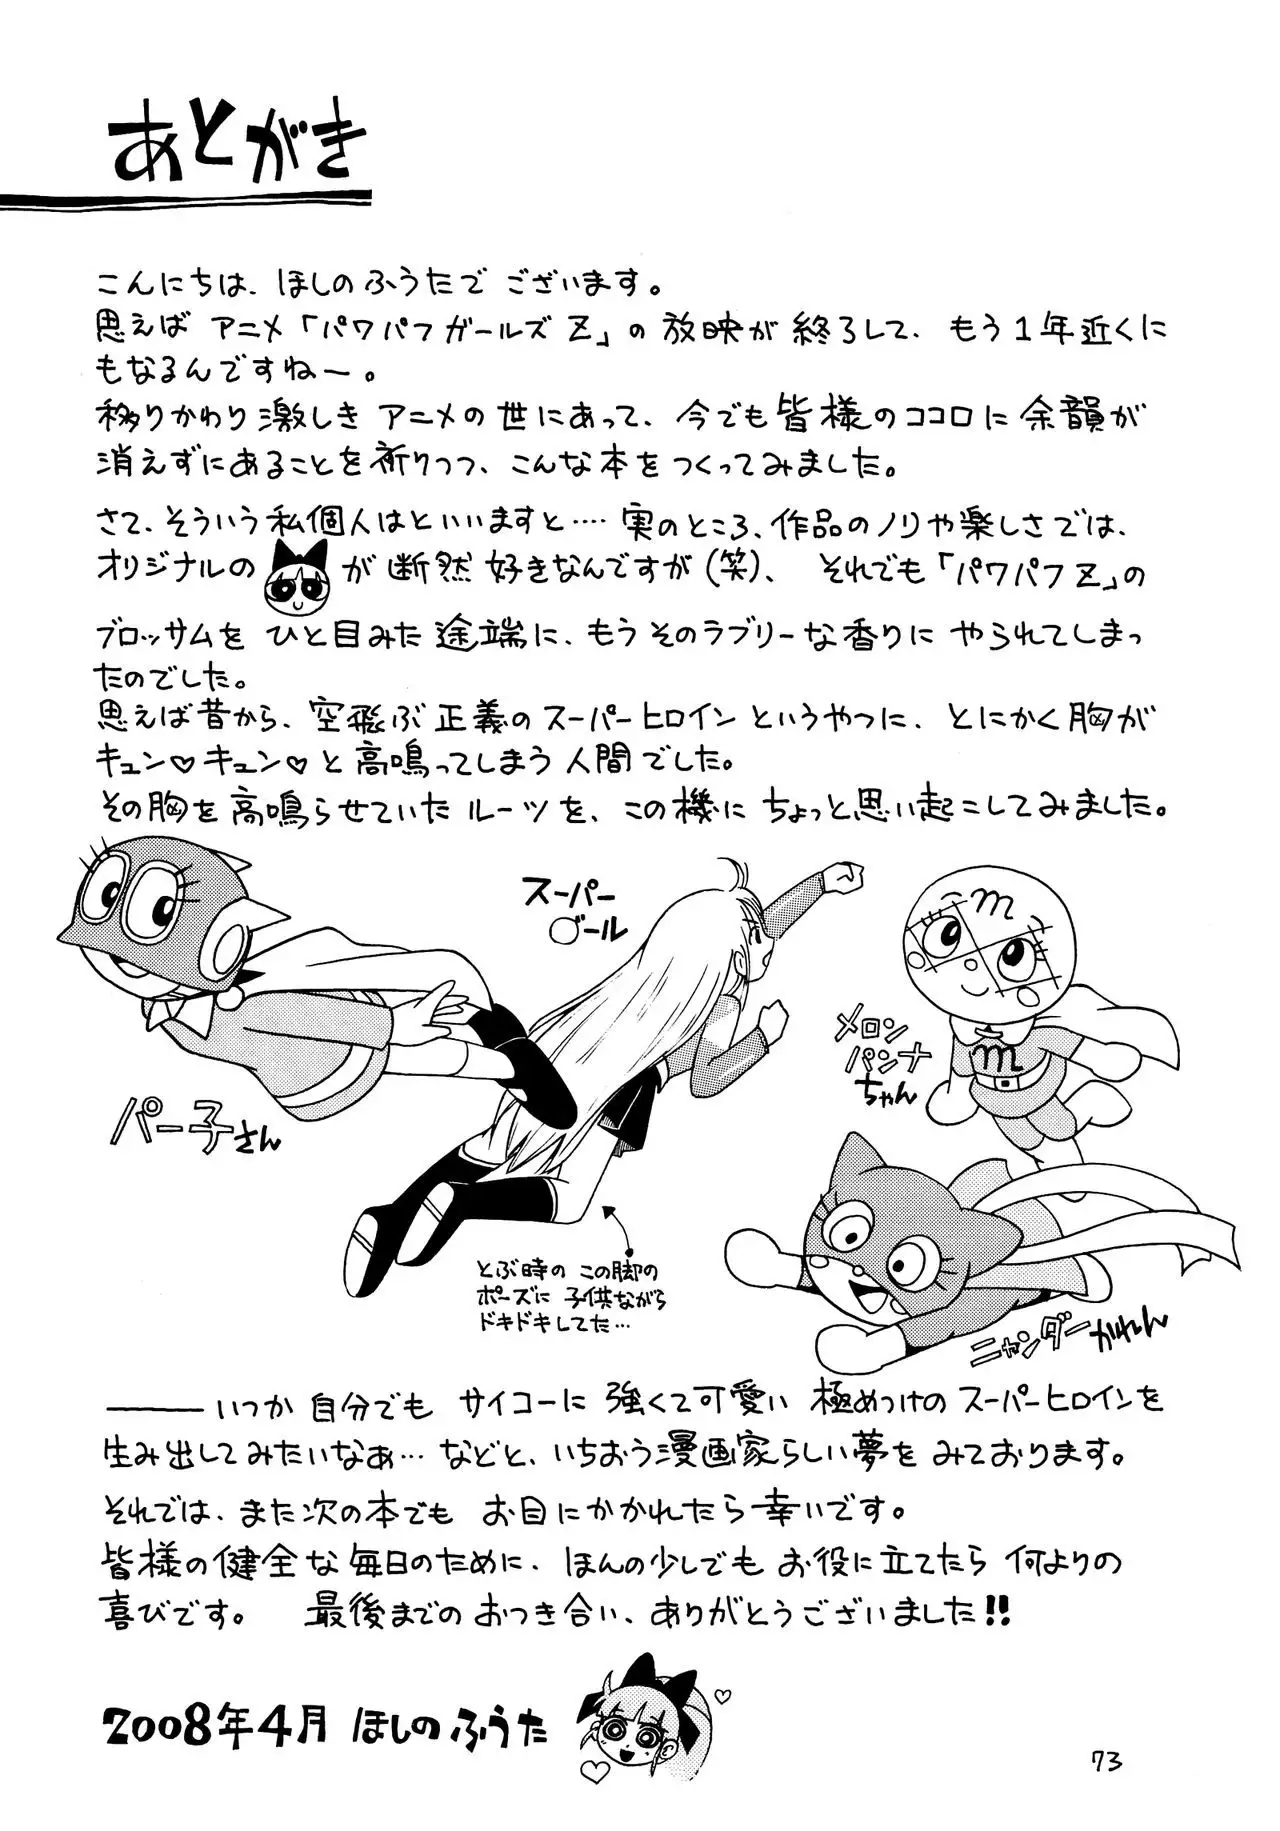 あとがき
こんにちは、ほしのふうたでございます。
思えばアニメ「パワパフガールズZ」の放映が終了して、もう1年近くに
もなるんですねー。
移りかわり激しきアニメの世にあって、今でも皆様のココロに余韻が
消えずにあることを祈りつつ、こんな本をつくってみました。
さて、そういう私個人はといいますと‥‥実のところ、作品のノリや楽しさでは、
オリジナルのが断然好きなんですが(笑)、それでも「パワパフZ」の
ブロッサムをひと目みた途端に、もうそのラブリーな香りにやられてしまっ
たのでした。
思えば昔から、空飛ぶ正義のスーパーヒロインというやつに、とにかく胸が
キュン♡キュン♡と高鳴ってしまう人間でした。
その胸を高鳴らせていたルーツを、この機にちょっと思い起こしてみました。
スーパー
○ール
メロン
パンナ
ちゃん
パー子さん
とぶ時のこの脚の
ポーズに子供ながら
ドキドキしてた…
ニャンダーかめん
――いつか自分でもサイコーに強くて可愛い極めつけのスーパーヒロインを
生み出してみたいなぁ…などと、いちおう漫画家らしい夢をみております。
それでは、また次の本でもお目にかかれたら幸いです。
皆様の健全な毎日のために、ほんの少しでもお役に立てたら何よりの
喜びです。最後までのおつき合い、ありがとうございました!!
2008年4月 ほしのふうた
73